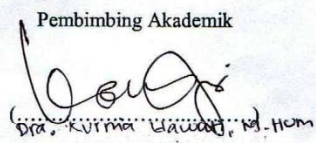 Pembimbing Akademik
(..............................)
Dra. Kurnia M.Hum